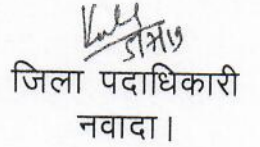 जिला पदाधिकारी
नवादा।